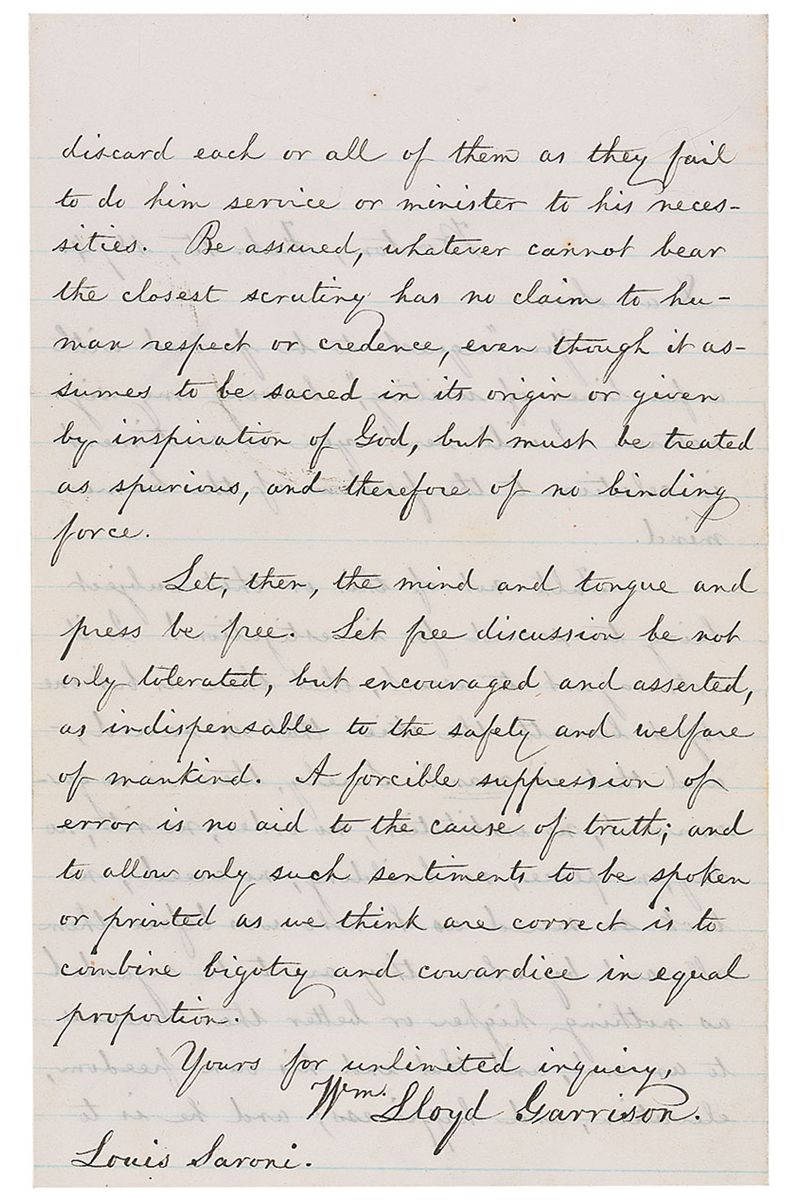 discard each or all of them as they fail
to do him service or minister to his neces-
sities. Be assured, whatever cannot bear
the closest scrutiny has no claim to hu-
man respect or credence, even though it as-
sumes to be sacred in its origin or given
by inspiration of God, but must be treated
as spurious, and therefore of no binding
force.
Let, then, the mind and tongue and
press be free. Let free discussion be not
only tolerated, but encouraged and asserted,
as indispensable to the safety and welfare
of mankind. A forcible suppression of
error is no aid to the cause of truth; and
to allow only such sentiments to be spoken
or printed as we think are correct is to
combine bigotry and cowardice in equal
proportion.
Yours for unlimited inquiry,
Wm. Lloyd Garrison.
Louis Saroni.